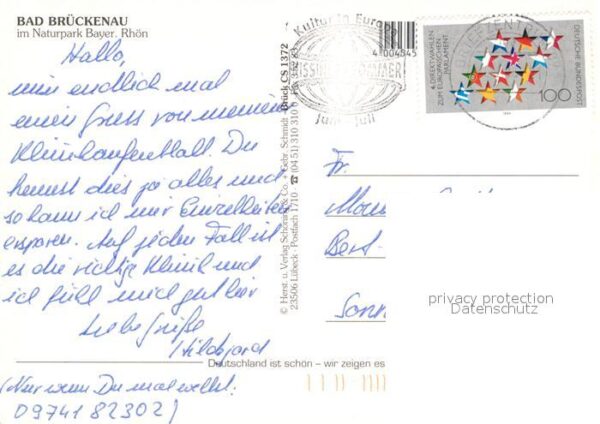 BAD BRÜCKENAU
im Naturpark Bayer. Rhön
Hallo,
nun endlich mal
einen Gruss von meinem
Klinikaufenthalt. Du
kennst dies ja alles und
so kann ich mir Einzelheiten
ersparen. Auf jeden Fall ist
es die richtige Klinik und
ich fühl mich gut hier
Liebe Grüße
Hildegard
(Nur wenn Du mal willst:
09741 82302)
© Herst. u. Verlag Schöning & Co. + Gebr. Schmidt
23506 Lübeck · Postfach 1710 · ☎ (04 51) 310 310
Brück CS 1372
Deutschland ist schön – wir zeigen es
Kultur in Europa
Juni - Juli
BRIEFZENTRUM
4. DIREKTWAHLEN
ZUM EUROPÄISCHEN
PARLAMENT
DEUTSCHE BUNDESPOST
100
1994
Fr.
privacy protection
Datenschutz